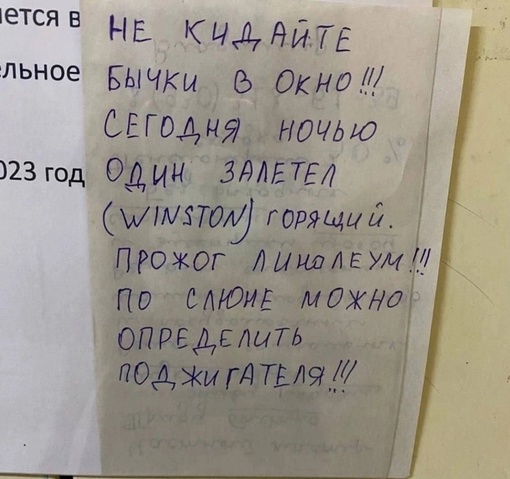 нется в
ельное
023 год
НЕ КИДАЙТЕ
БЫЧКИ В ОКНО!!!
СЕГОДНЯ НОЧЬЮ
ОДИН ЗАЛЕТЕЛ
(WINSTON) ГОРЯЩИЙ.
ПРОЖОГ ЛИНОЛЕУМ!!!
ПО СЛЮНЕ МОЖНО
ОПРЕДЕЛИТЬ
ПОДЖИГАТЕЛЯ!!!